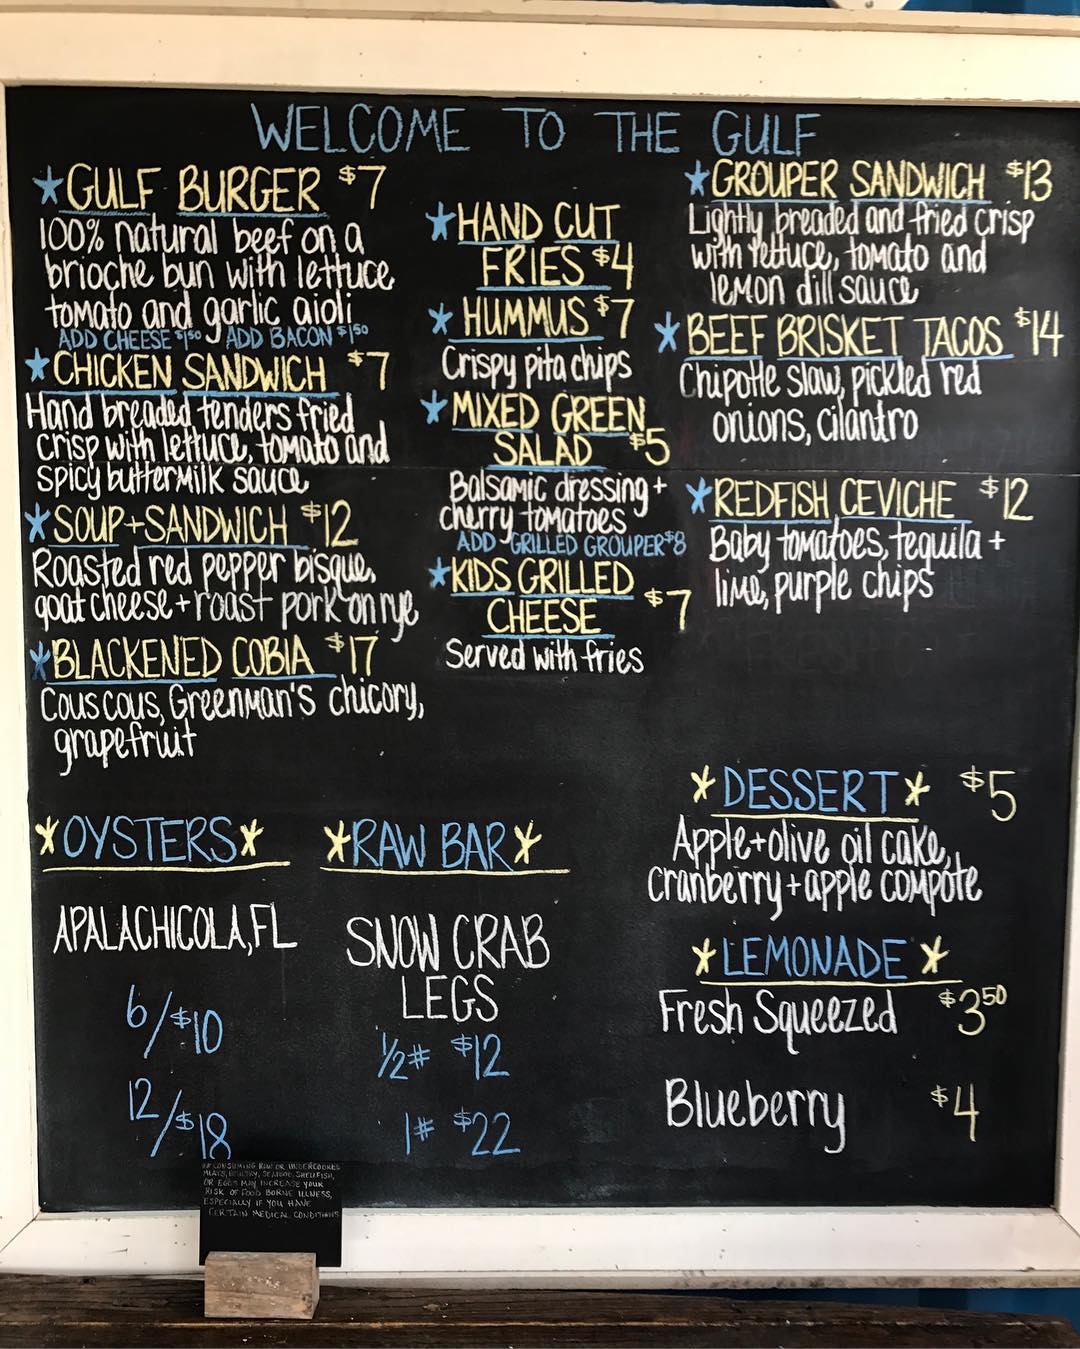 WELCOME TO THE GULF
GULF BURGER $7
100% natural beef on a
brioche bun with lettuce,
tomato and garlic aioli
ADD CHEESE $1.50 ADD BACON $1.50
CHICKEN SANDWICH $7
Hand breaded tenders fried
crisp with lettuce, tomato and
spicy buttermilk sauce
SOUP+SANDWICH $12
Roasted red pepper bisque,
goat cheese+roast pork on rye
BLACKENED COBIA $17
Couscous, Greenman's chicory,
grapefruit
HAND CUT
FRIES $4
HUMMUS $7
Crispy pita chips
MIXED GREEN
SALAD $5
Balsamic dressing +
cherry tomatoes
ADD GRILLED GROUPER $8
KIDS GRILLED
CHEESE $7
Served with fries
GROUPER SANDWICH $13
Lightly breaded and fried crisp
with lettuce, tomato and
lemon dill sauce
BEEF BRISKET TACOS $14
Chipotle slaw, pickled red
onions, cilantro
REDFISH CEVICHE $12
Baby tomatoes, tequila +
lime, purple chips
OYSTERS
APALACHICOLA, FL
6/$10
12/$18
RAW BAR
SNOW CRAB
LEGS
1/2# $12
1# $22
DESSERT $5
Apple+olive oil cake,
cranberry+apple compote
LEMONADE
Fresh Squeezed $3.50
Blueberry $4
CONSUMING RAW OR UNDERCOOKED
MEATS, POULTRY, SEAFOOD, SHELLFISH,
OR EGGS MAY INCREASE YOUR
RISK OF FOOD BORNE ILLNESS,
ESPECIALLY IF YOU HAVE
CERTAIN MEDICAL CONDITIONS